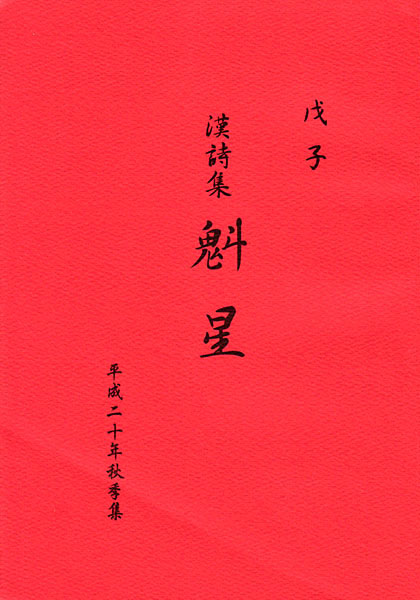 戊子
漢詩集 魁星
平成二十年秋季集